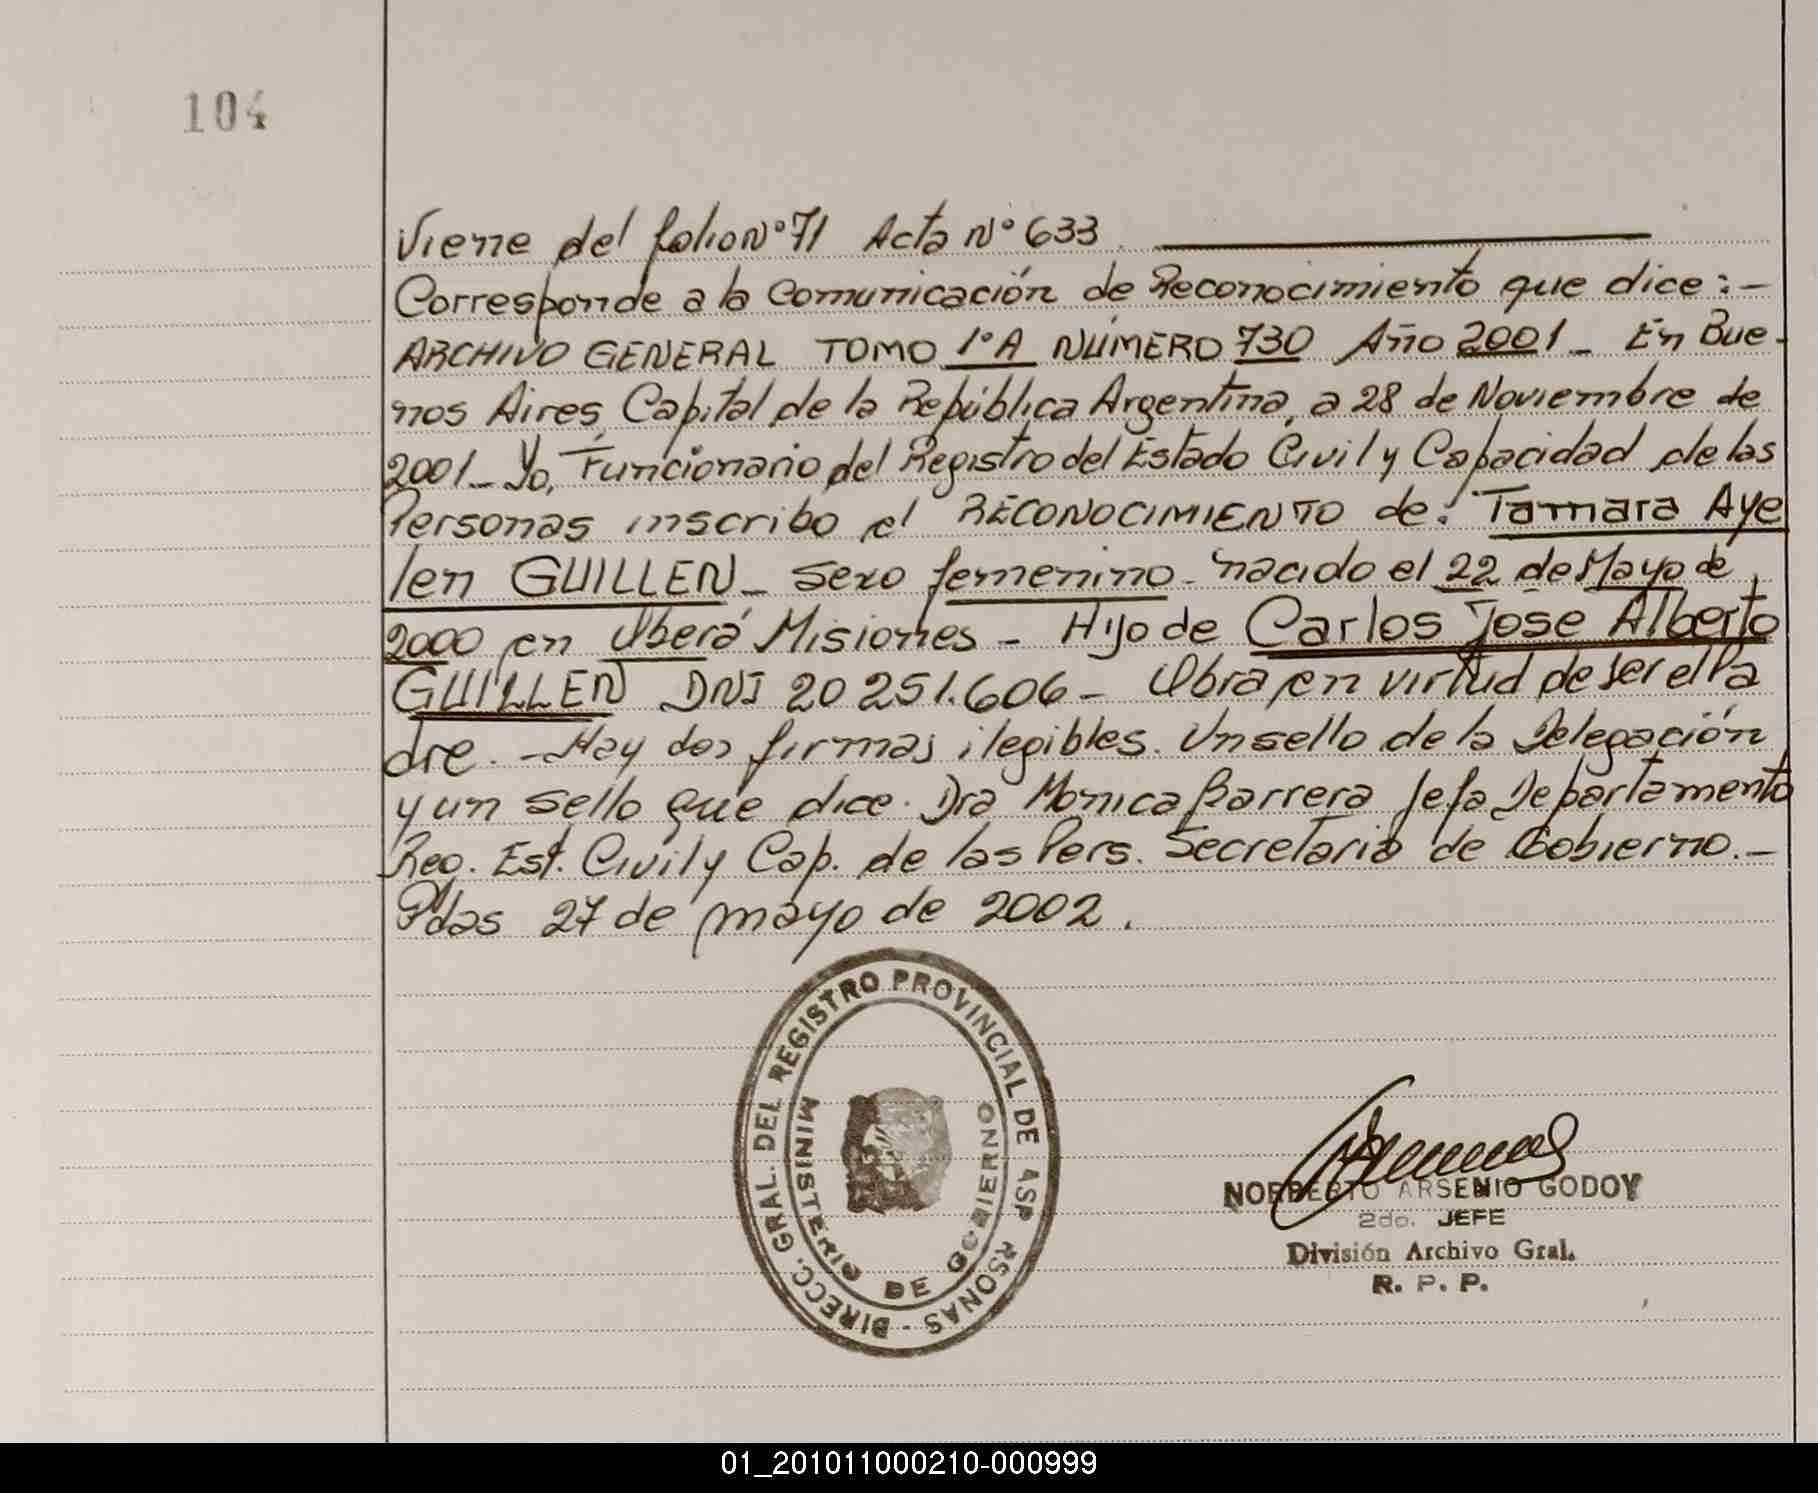 104
Viene del folio Nº 71 Acta Nº 633
Corresponde a la Comunicación de Reconocimiento que dice: -
ARCHIVO GENERAL TOMO 1ºA NÚMERO 730 Año 2001 - En Bue-
nos Aires, Capital de la República Argentina, a 28 de Noviembre de
2001 - Yo, Funcionario del Registro del Estado Civil y Capacidad de las
Personas inscribo el RECONOCIMIENTO de: Tamara Aye
len GUILLEN - Sexo femenino - nacido el 22 de Mayo de
2000 en Oberá Misiones - Hijo de Carlos José Alberto
GUILLEN DNI 20 251.606 - Obra en virtud de ser el Pa
dre. - Hay dos firmas ilegibles. Un sello de la Delegación
y un sello que dice. Dra Monica Barrera Jefa Departamento
Reg. Est. Civil y Cap. de las Pers. Secretaria de Gobierno. -
Pdas 27 de mayo de 2002.
DIRECC. GRAL. DEL REGISTRO PROVINCIAL DE ASP RSONAS -
MINISTERIO DE GOBIERNO
NORBERTO ARSENIO GODOY
2do. JEFE
División Archivo Gral.
R. P. P.
01_201011000210-000999